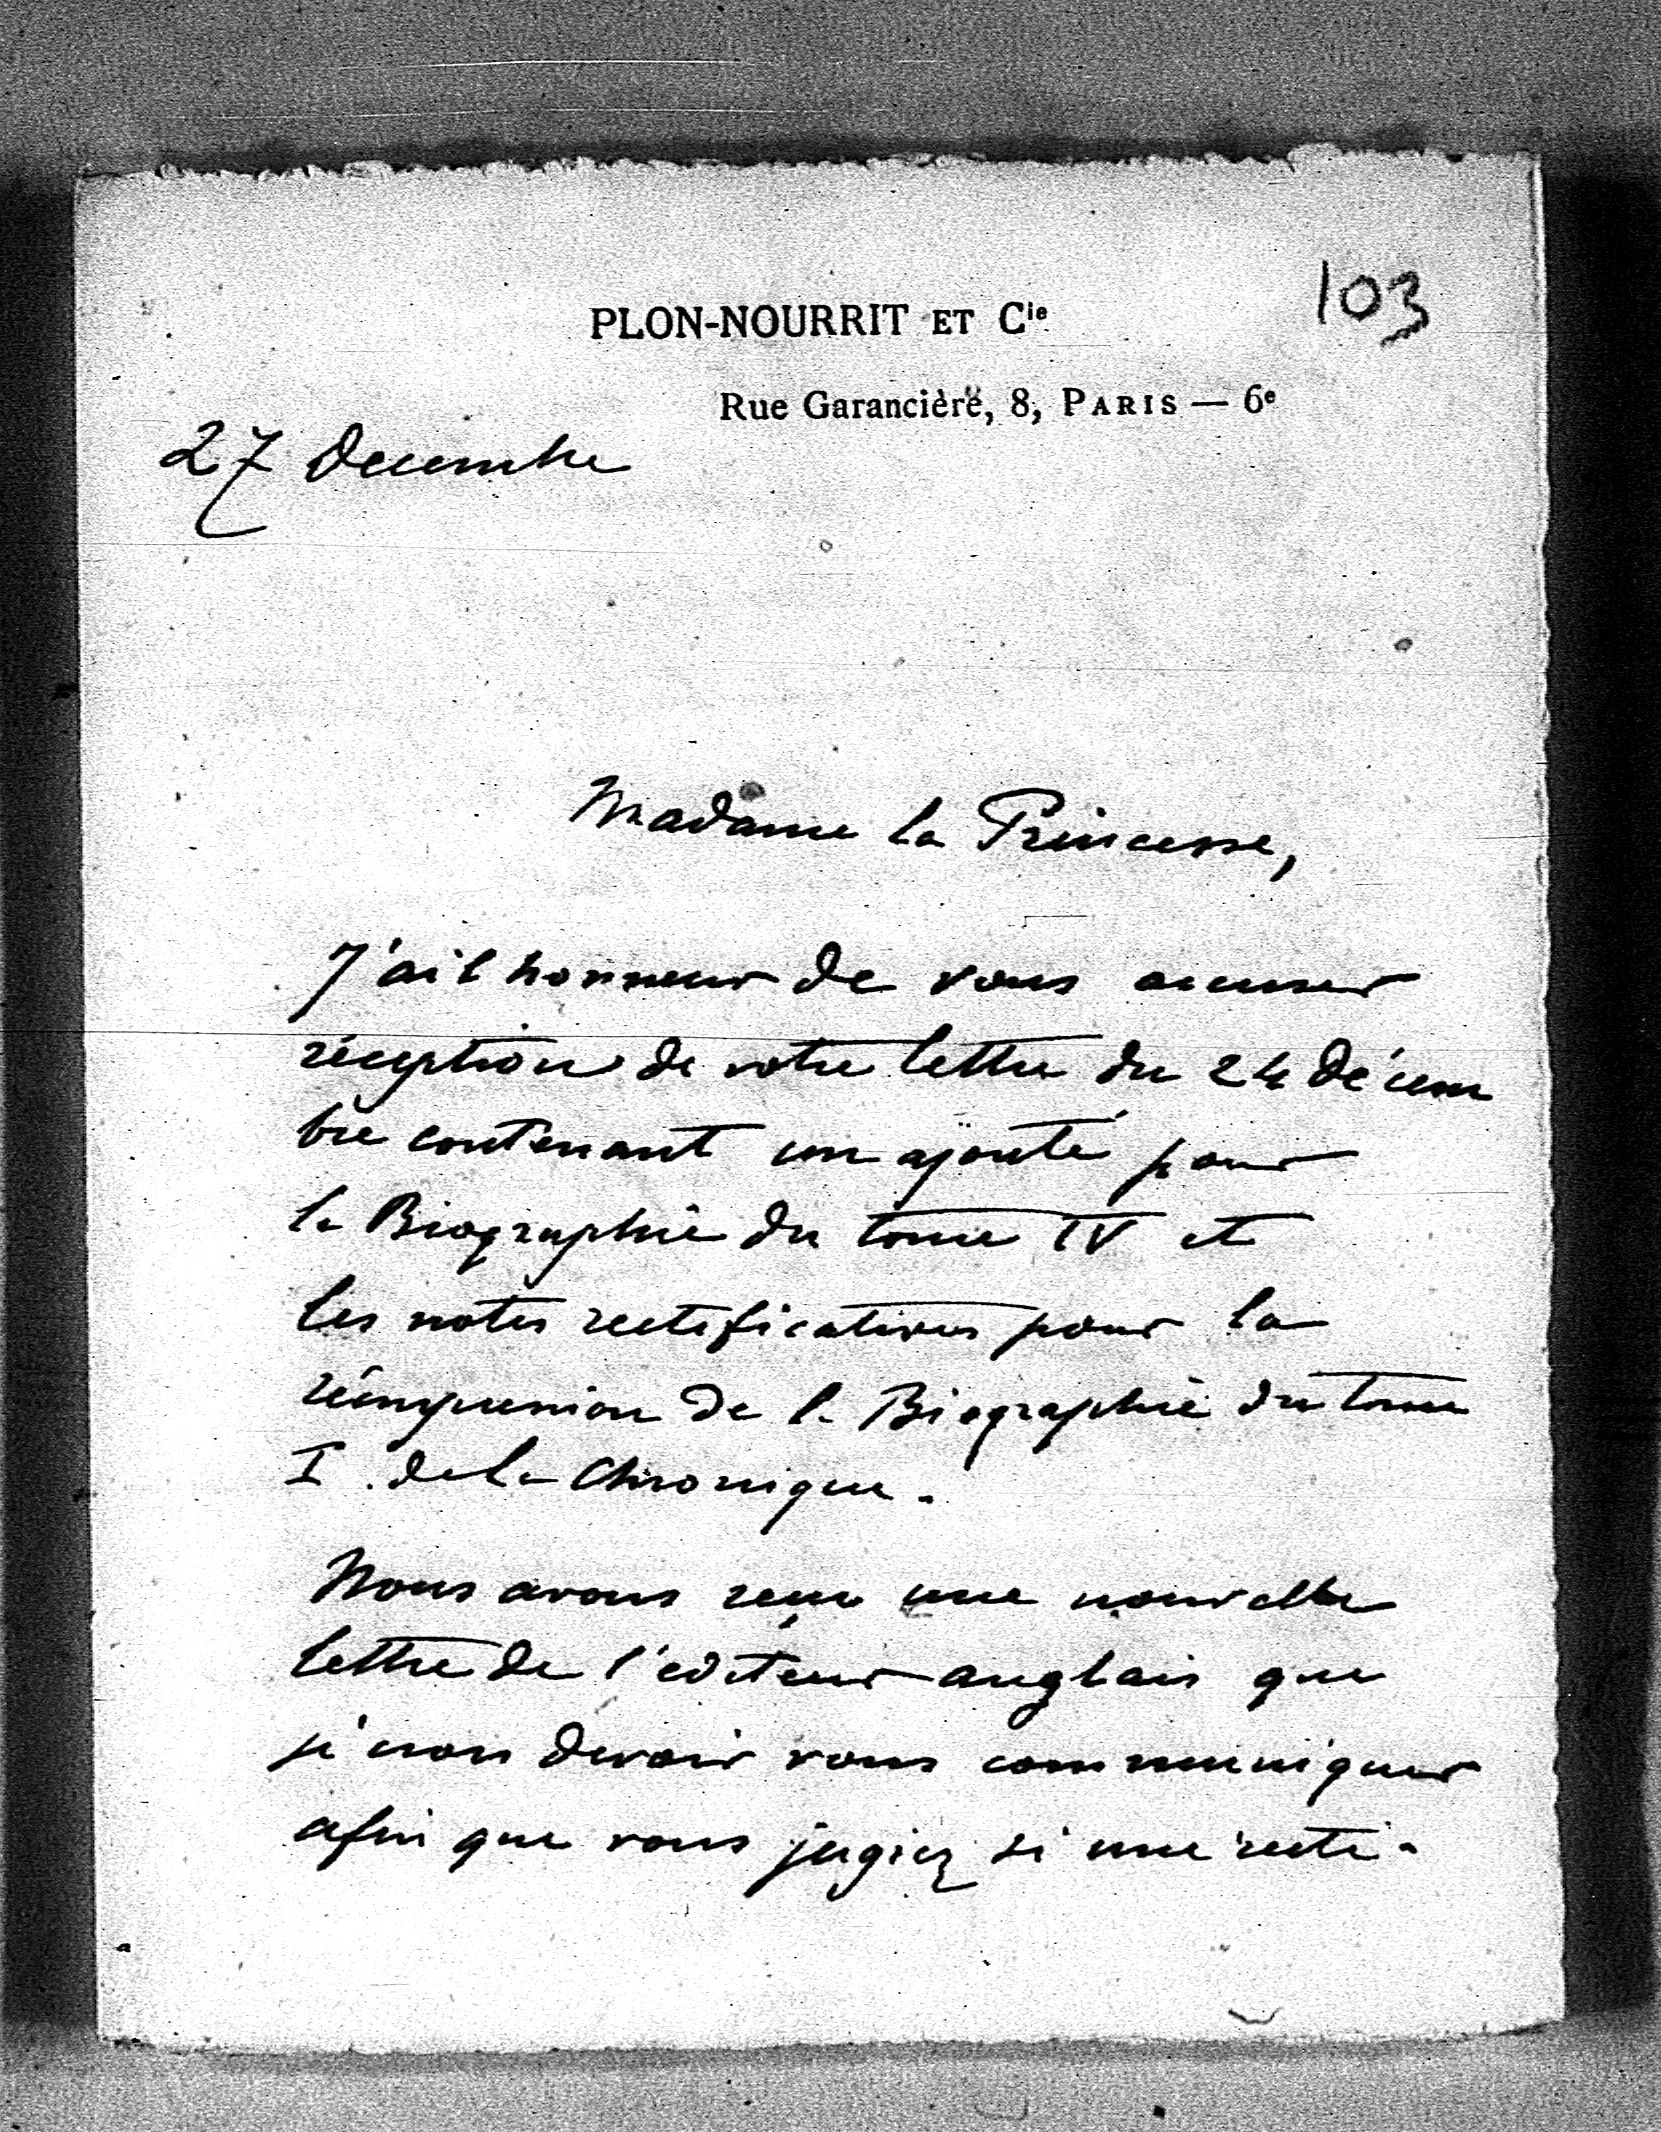 103
PLON-NOURRIT ET Cie
Rue Garancière, 8, PARIS — 6e
27 Decembre
Madame la Princesse,
J'ai l honneur de vous accuser
réception de votre lettre du 24 décem
bre contenant un ajouté pour
la Biographie du tome IV et
les notes rectificatives pour la
réimpression de la Biographie du tome
I de la Chronique.
Nous avons reçu une nouvelle
lettre de l'editeur anglais que
je crois devoir vous communiquer
afin que vous jugiez si une recti-